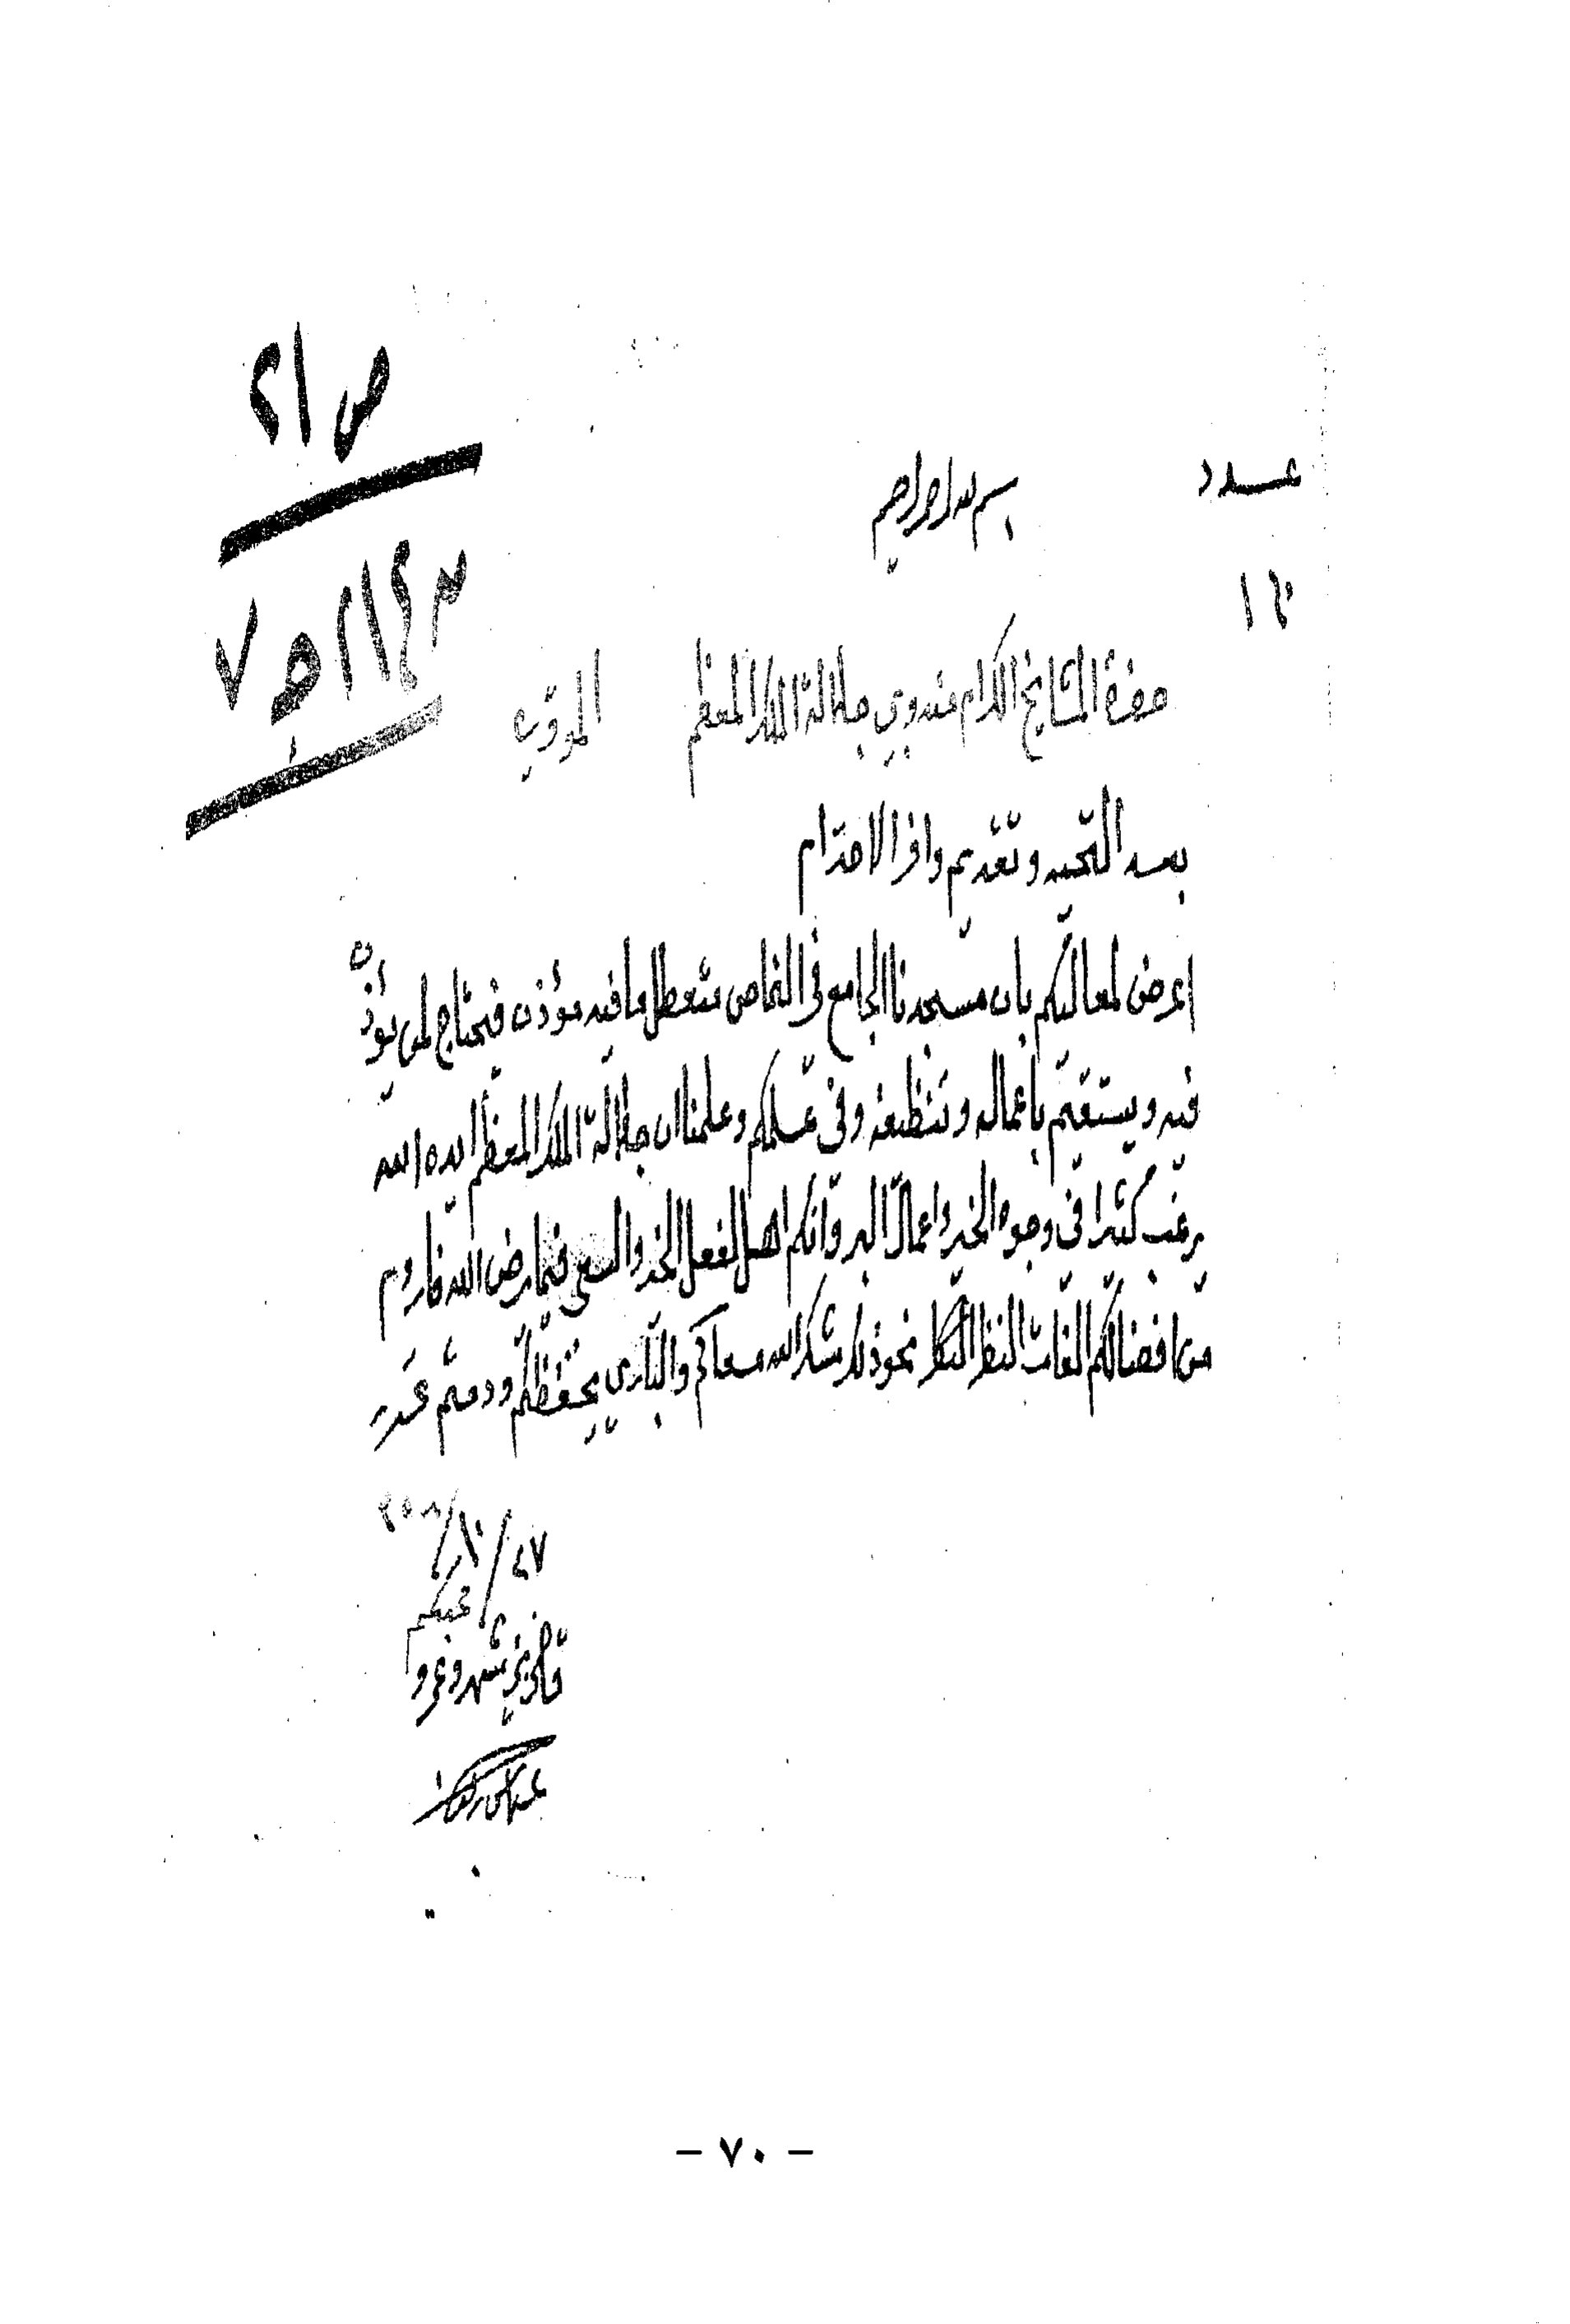 ص ٢١
عدد
بسم الله الرحمن الرحيم
حضرة المشايخ الكرام مندوبي جلالة الملك المعظم الموقرين
بعد التحيه وتقديم وافر الاحترام
اعرض لمعاليكم بان مسجدنا الجامع في النماص متعطل ما فيه مؤذن فيحتاج لمن يؤذن
فيه ويستقيم بأعماله وتنظيفه وفي علمكم وعلمنا ان جلالة الملك المعظم ايده الله
يرغب كثيرا في وجوه الخير واعمال البر وانكم اهل لفعل الخير والسعي فيما يرضي الله فاروم
من افضالكم القات النظر نحو ذلك شكر الله مسعاكم والباري يحفظكم ودمتم محرر
محبكم
قاضي بني شهر وعمرو
- ٧٠ -